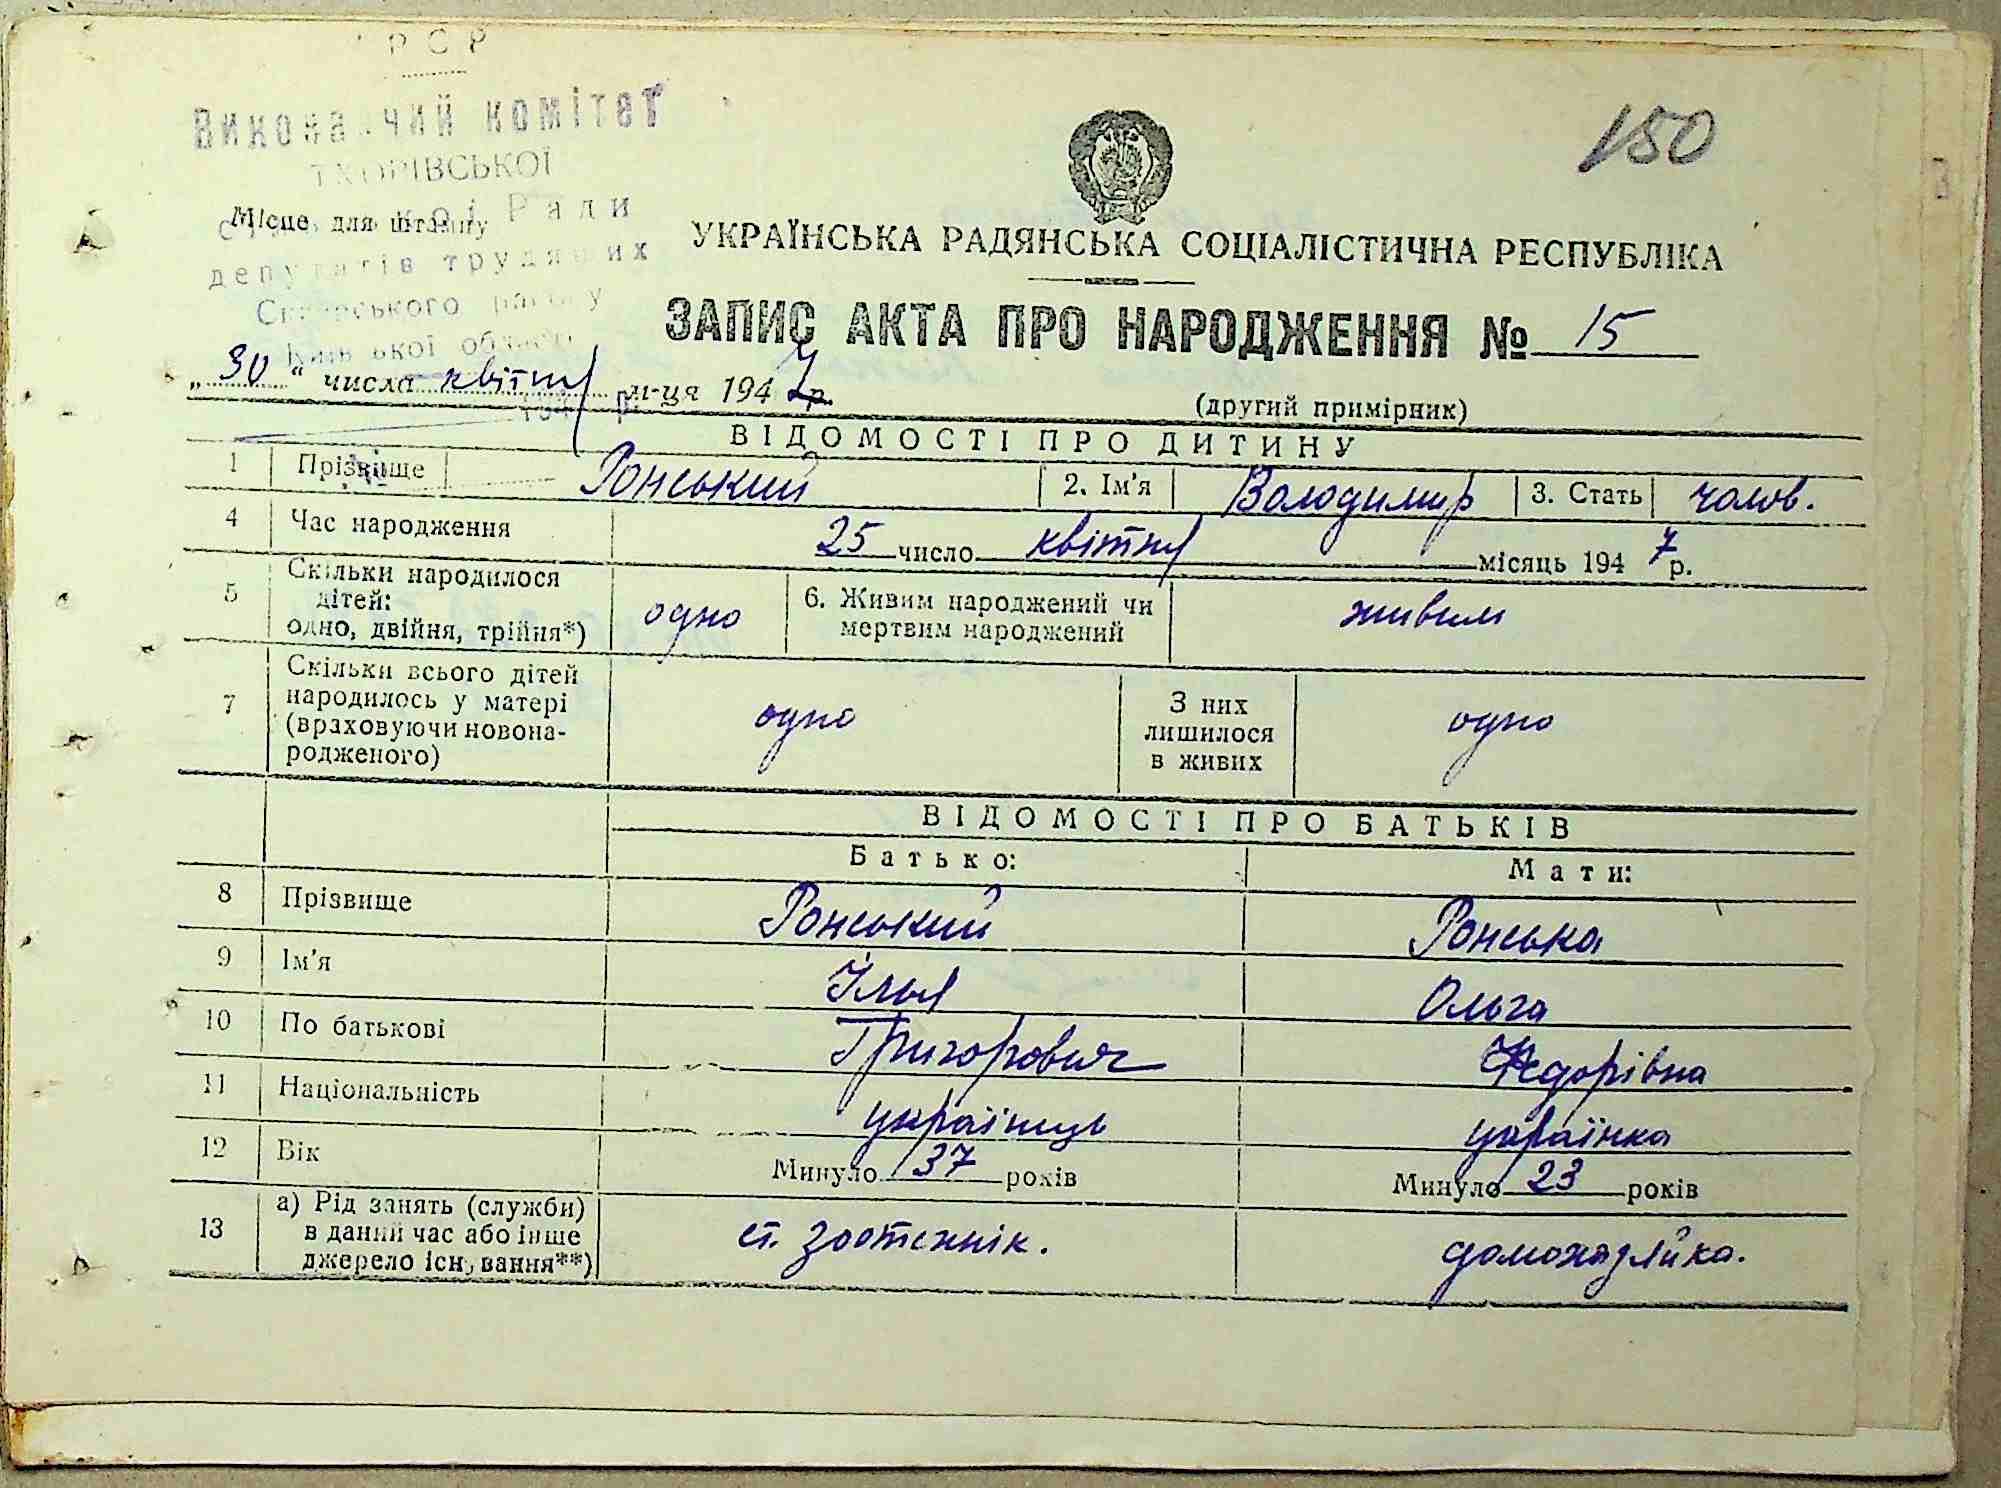 РСР
Виконавчий комітет
ТХОРІВСЬКОЇ
Ради
Місце для штампу
депутатів трудящих
Сквирського району
Київської області
150
УКРАЇНСЬКА РАДЯНСЬКА СОЦІАЛІСТИЧНА РЕСПУБЛІКА
ЗАПИС АКТА ПРО НАРОДЖЕННЯ № 15
„30“ числа квітня м-ця 1947 р.
(другий примірник)
ВІДОМОСТІ ПРО ДИТИНУ
1 Прізвище Ронський 2. Ім'я Володимир 3. Стать чолов.
4 Час народження 25 число квітня місяць 1947 р.
5 Скільки народилося
дітей:
одно, двійня, трійня*) одно 6. Живим народжений чи
мертвим народжений живим
7 Скільки всього дітей
народилось у матері
(враховуючи новона-
родженого) одно З них
лишилося
в живих одно
ВІДОМОСТІ ПРО БАТЬКІВ
Батько: Мати:
8 Прізвище Ронський Ронська
9 Ім'я Ілья Ольга
10 По батькові Григорович Федорівна
11 Національність українець українка
12 Вік Минуло 37 років Минуло 23 років
13 а) Рід занять (служби)
в даний час або інше
джерело існування**) ст. зоотехнік. домохазяйка.